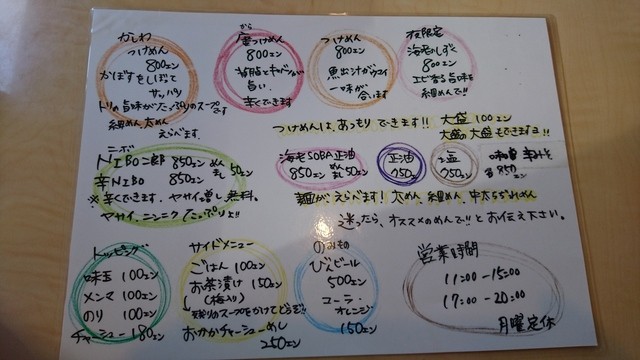 かしわ
つけめん
800エン
かぼすをしぼって
サッパリ
トリの旨味がたっぷりのスープです
細めん、太めん
えらべます。
から
つけめん
800エン
背脂とキャベツが
旨い、
辛くできます
つけめん
800エン
魚出汁がウマイ
一味が
合います
夜限定
海老のしずく
800エン
エビ香る旨味を
細めんで!!
つけめんは、あつもりできます!! 大盛100エン
大盛の大盛もできますヨ!!
ニボ
NIBO二郎 850エン めん
辛NIBO 850エン 増し50エン
※辛くできます。ヤサイ増し無料。
ヤサイ、ニンニクたっぷりよ!!
海老SOBA正油
850エン めん増し50エン
正油
750エン
塩
750エン
味噌 辛みそ
各850エン
麺が、えらべます! 太めん、細めん、中太ちぢれめん
迷ったら、オススメのめんで!!とお伝え下さい。
トッピング
味玉 100エン
メンマ 100エン
のり 100エン
チャーシュー 180エン
サイドメニュー
ごはん 100エン
お茶漬け 150エン
(梅入り)
残りのスープをかけてどうぞ!!
おかかチャーシューめし
250エン
のみもの
びんビール
500エン
コーラ、
オレンジ
150エン
営業時間
11:00-15:00
17:00-20:00
月曜定休